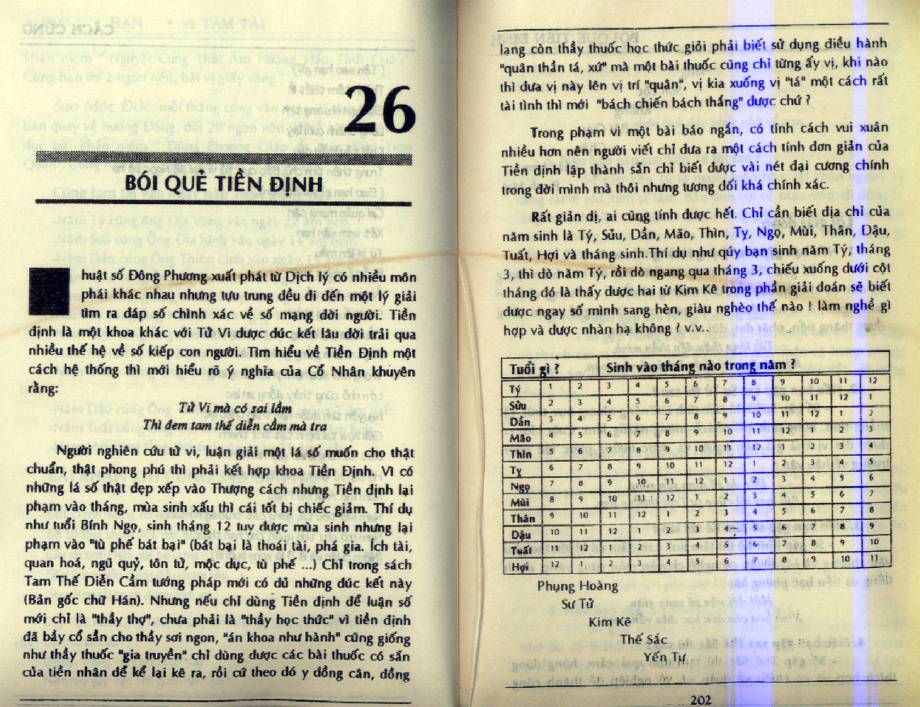 26
BÓI QUẺ TIỀN ĐỊNH
huật số Đông Phương xuất phát từ Dịch lý có nhiều môn
phái khác nhau nhưng tựu trung đều đi đến một lý giải
tìm ra đáp số chình xác về số mạng đời người. Tiền
định là một khoa khác với Tử Vi được đúc kết lâu đời trải qua
nhiều thế hệ về số kiếp con người. Tìm hiểu về Tiền Định một
cách hệ thống thì mới hiểu rõ ý nghĩa của Cổ Nhân khuyên
rằng:
Tử Vi mà có sai lầm
Thì đem tam thế diễn cầm mà tra
Người nghiên cứu tử vi, luận giải một lá số muốn cho thật
chuẩn, thật phong phú thì phải kết hợp khoa Tiền Định. Vì có
những lá số thật đẹp xếp vào Thượng cách nhưng Tiền định lại
phạm vào tháng, mùa sinh xấu thì cái tốt bị chiếc giảm. Thí dụ
như tuổi Bính Ngọ, sinh tháng 12 tuy được mùa sinh nhưng lại
phạm vào "tù phế bát bại" (bát bại là thoái tài, phá gia. Ích tài,
quan hoá, ngũ quỷ, tôn tử, mộc dục, tù phế ...) Chỉ trong sách
Tam Thế Diễn Cầm tướng pháp mới có đủ những đúc kết này
(Bản gốc chữ Hán). Nhưng nếu chỉ dùng Tiền định để luận số
mới chỉ là "thầy thợ", chưa phải là "thầy học thức" vì tiền định
đã bầy cổ sẳn cho thầy sơi ngon, "án khoa như hành" cũng giống
như thầy thuốc "gia truyền" chỉ dùng được các bài thuốc có sẵn
của tiền nhân để kể lại kê ra, rồi cứ theo đó y đồng cân, đồng
lạng còn thầy thuốc học thức giỏi phải biết sử dụng điều hành
"quân thần tá, xứ" mà một bài thuốc cũng chỉ từng ấy vị, khi nào
thì đưa vị này lên vị trí "quân", vị kia xuống vị "tá" một cách rất
tài tình thì mới "bách chiến bách thắng" được chứ ?
Trong phạm vì một bài báo ngắn, có tính cách vui xuân
nhiều hơn nên người viết chỉ đưa ra một cách tính đơn giản của
Tiền định lập thành sẵn chỉ biết được vài nét đại cương chính
trong đời mình mà thôi nhưng tương đối khá chính xác.
Rất giản dị, ai cũng tính được hết. Chỉ cần biết địa chi của
năm sinh là Tý, Sủu, Dần, Mão, Thìn, Tỵ, Ngọ, Mùi, Thân, Dậu,
Tuất, Hợi và tháng sinh.Thí dụ như qúy bạn sinh năm Tý, tháng
3, thì dò năm Tý, rồi dò ngang qua tháng 3, chiếu xuống dưới cột
tháng đó là thấy được hai từ Kim Kê trong phần giải đoán sẽ biết
được ngay số mình sang hèn, giàu nghèo thế nào ! làm nghề gì
hợp và được nhàn hạ không ? v.v..
Tuổi gì ? Sinh vào tháng nào trong năm ?
Tý 1 2 3 4 5 6 7 8 9 10 11 12
Sửu 2 3 4 5 6 7 8 9 10 11 12 1
Dần 3 4 5 6 7 8 9 10 11 12 1 2
Mão 4 5 6 7 8 9 10 11 12 1 2 3
Thìn 5 6 7 8 9 10 11 12 1 2 3 4
Tỵ 6 7 8 9 10 11 12 1 2 3 4 5
Ngọ 7 8 9 10 11 12 1 2 3 4 5 6
Mùi 8 9 10 11 12 1 2 3 4 5 6 7
Thân 9 10 11 12 1 2 3 4 5 6 7 8
Dậu 10 11 12 1 2 3 4 5 6 7 8 9
Tuất 11 12 1 2 3 4 5 6 7 8 9 10
Hợi 12 1 2 3 4 5 6 7 8 9 10 11
Phụng Hoàng
Sư Tử
Kim Kê
Thế Sắc
Yến Tự
202